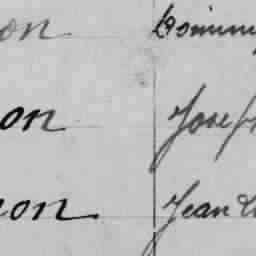 on Dominiq
on Joseph
non Jean